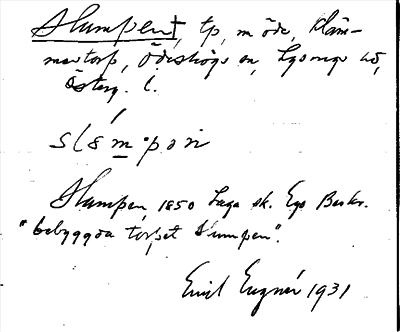 Slumpen, tp, m öde, Kläm-
mestorp, Ödeshögs sn, Lysings hd,
Österg. l.
slømpən
Slumpen 1850 Laga sk. Ego Beskr.
"bebyggda torpet Slumpen".
Emil 1931